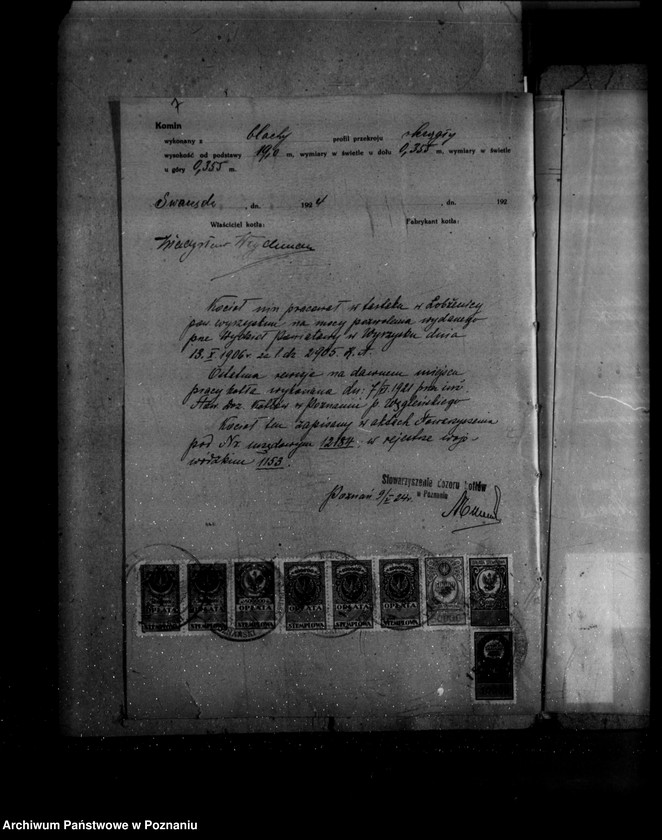 7
Komin
wykonany z blachy profil przekroju okrągły
wysokość od podstawy 19,0 m, wymiary w świetle u dołu 0,355 m, wymiary w świetle
u góry 0,355 m.
, dn. 1924 , dn. 192
Właściciel kotła: Fabrykant kotła:
Kocioł nin pracował w tartaku w Łobżenicy
pow wyrzyskim na mocy pozwolenia wydanego
prz Wydział Powiatowy w Wyrzysku dnia
13. X 1906 r. za l. dz 2905. K. A.
Ostatnia rewizja na dawnem miejscu
pracy kotła wykonana dn: 7/VI 1921 prze inż
Stow. doz. Kotłów w Poznaniu p. Węgleńskiego
Kocioł ten zapisany w aktach Stowarzyszenia
pod Nr. urzędowym 12184. w rejestrze woje-
wódzkim 1153.
Stowarzyszenie Dozoru Kotłów
w Poznaniu
Poznań 9/V 24 r.
OPŁATA
STEMPLOWA
OPŁATA
STEMPLOWA
OPŁATA
STEMPLOWA
OPŁATA
STEMPLOWA
OPŁATA
STEMPLOWA
OPŁATA
STEMPLOWA
Archiwum Państwowe w Poznaniu